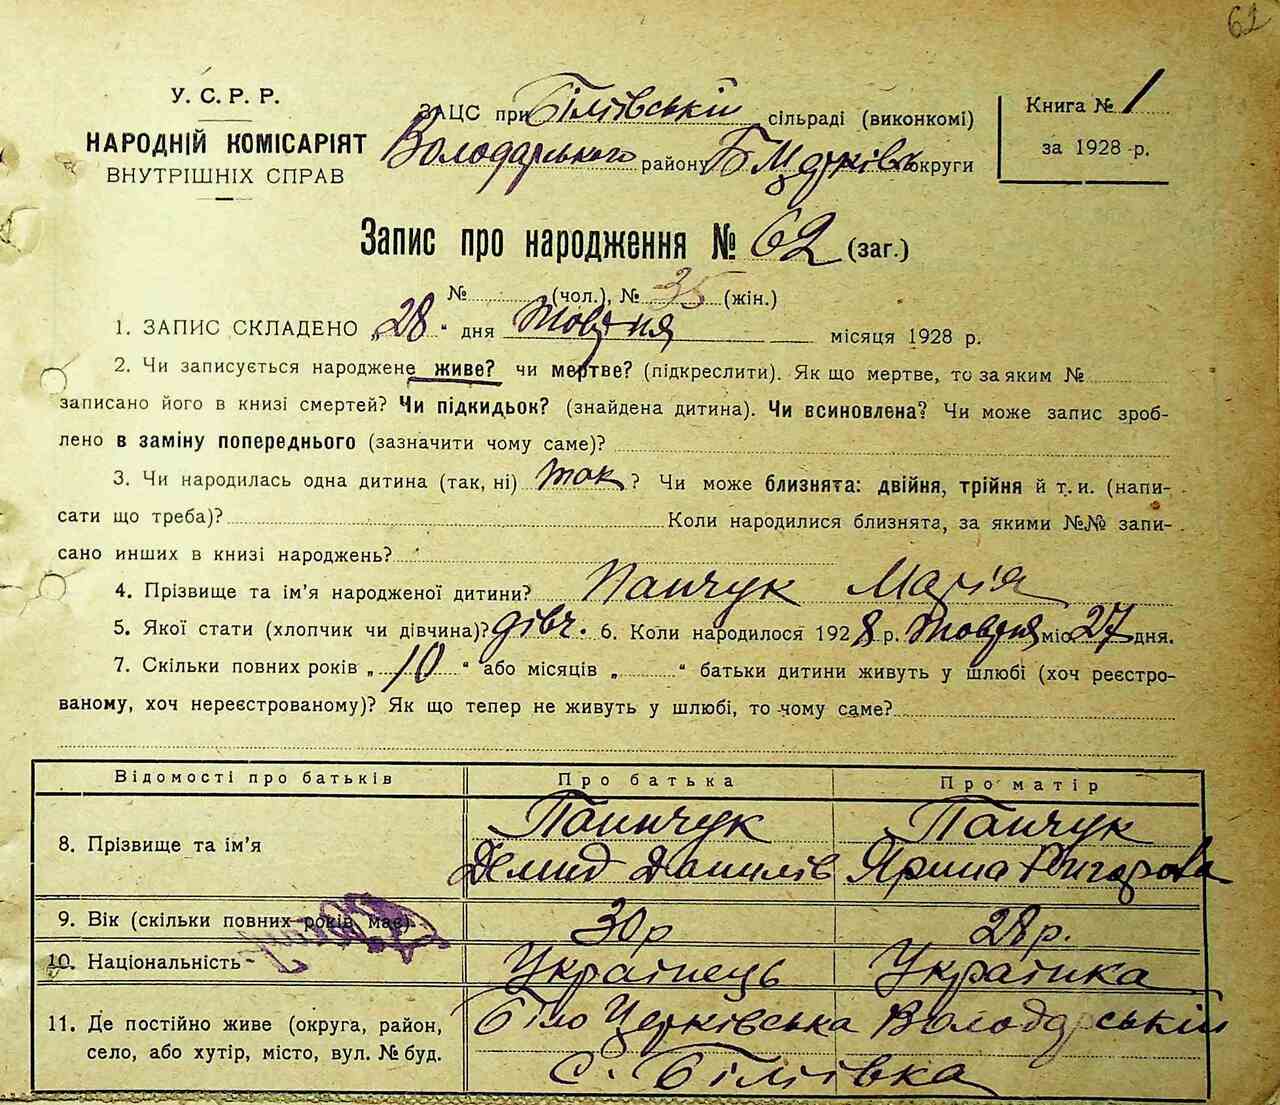 62
У. С. Р. Р.
НАРОДНІЙ КОМІСАРІЯТ
ВНУТРІШНІХ СПРАВ
ЗАЦС при Біліївській сільраді (виконкомі)
Володарського району Б Церківь округи
Книга № 1
за 1928 р.
Запис про народження № 62 (заг.)
№ (чол.), № 35 (жін.)
1. ЗАПИС СКЛАДЕНО „28“ дня Жовтня місяця 1928 р.
2. Чи записується народжене живе? чи мертве? (підкреслити). Як що мертве, то за яким №
записано його в книзі смертей? Чи підкидьок? (знайдена дитина). Чи всиновлена? Чи може запис зроб-
лено в заміну попереднього (зазначити чому саме)?
3. Чи народилась одна дитина (так, ні) так? Чи може близнята: двійня, трійня й т. и. (напи-
сати що треба)? Коли народилися близнята, за якими №№ запи-
сано инших в книзі народжень?
4. Прізвище та ім'я народженої дитини? Панчук Марія
5. Якої стати (хлопчик чи дівчина)? дівч. 6. Коли народилося 1928 р. Жовтня міс 27 дня.
7. Скільки повних років „10“ або місяців „ “ батьки дитини живуть у шлюбі (хоч реєстро-
ваному, хоч нереєстрованому)? Як що тепер не живуть у шлюбі, то чому саме?
Відомості про батьків Про батька Про матір
8. Прізвище та ім'я
Панчук Панчук
Демид Данилів Ярина Григорова
9. Вік (скільки повних років має) 30 р 28 р.
10. Національність Українець Українка
11. Де постійно живе (округа, район,
село, або хутір, місто, вул. № буд.
Біло Церківська Володарській
с. Біліївка